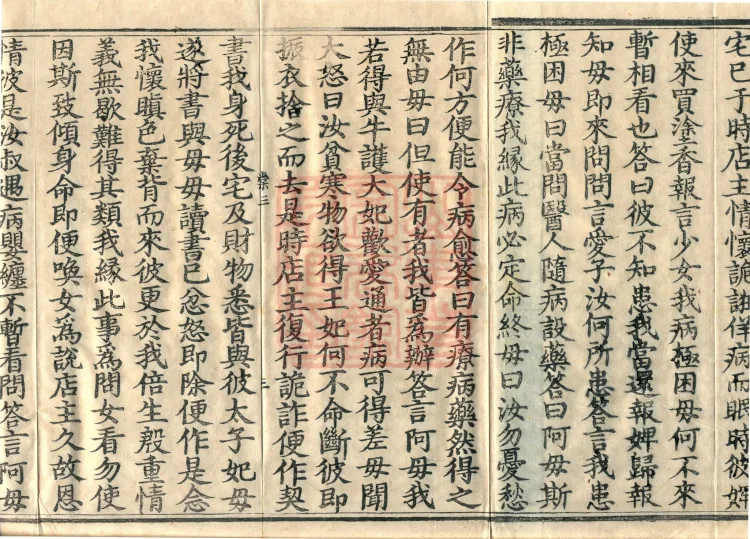 宅已于時店主情懷諂誑佯病而眠時彼婇
使來買塗香報言少女我病極困母何不來
暫相看也答曰彼不知患我當還報婢歸報
知母即來問問言愛子汝何所患答言我患
極困母曰當問醫人隨病設藥答曰阿母斯
非藥療我緣此病必定命終母曰汝勿憂愁
作何方便能令病愈答曰有療病藥然得之
無由母曰但使有者我皆為辦答言阿母我
若得與牛護大妃歡愛通者病可得差母聞
大怒曰汝貧寒物欲得王妃何不命斷彼即
振衣捨之而去是時店主復行詭詐便作契
業三 三
書我身死後宅及財物悉皆與彼太子妃母
遂將書與母母讀書已忿怒即除便作是念
我懷瞋色棄背而來彼更於我倍生殷重情
義無歇難得其類我緣此事為問女看勿使
因斯致傾身命即便喚女為說店主久故恩
情彼是汝叔遇病嬰纏不暫看問答言阿母